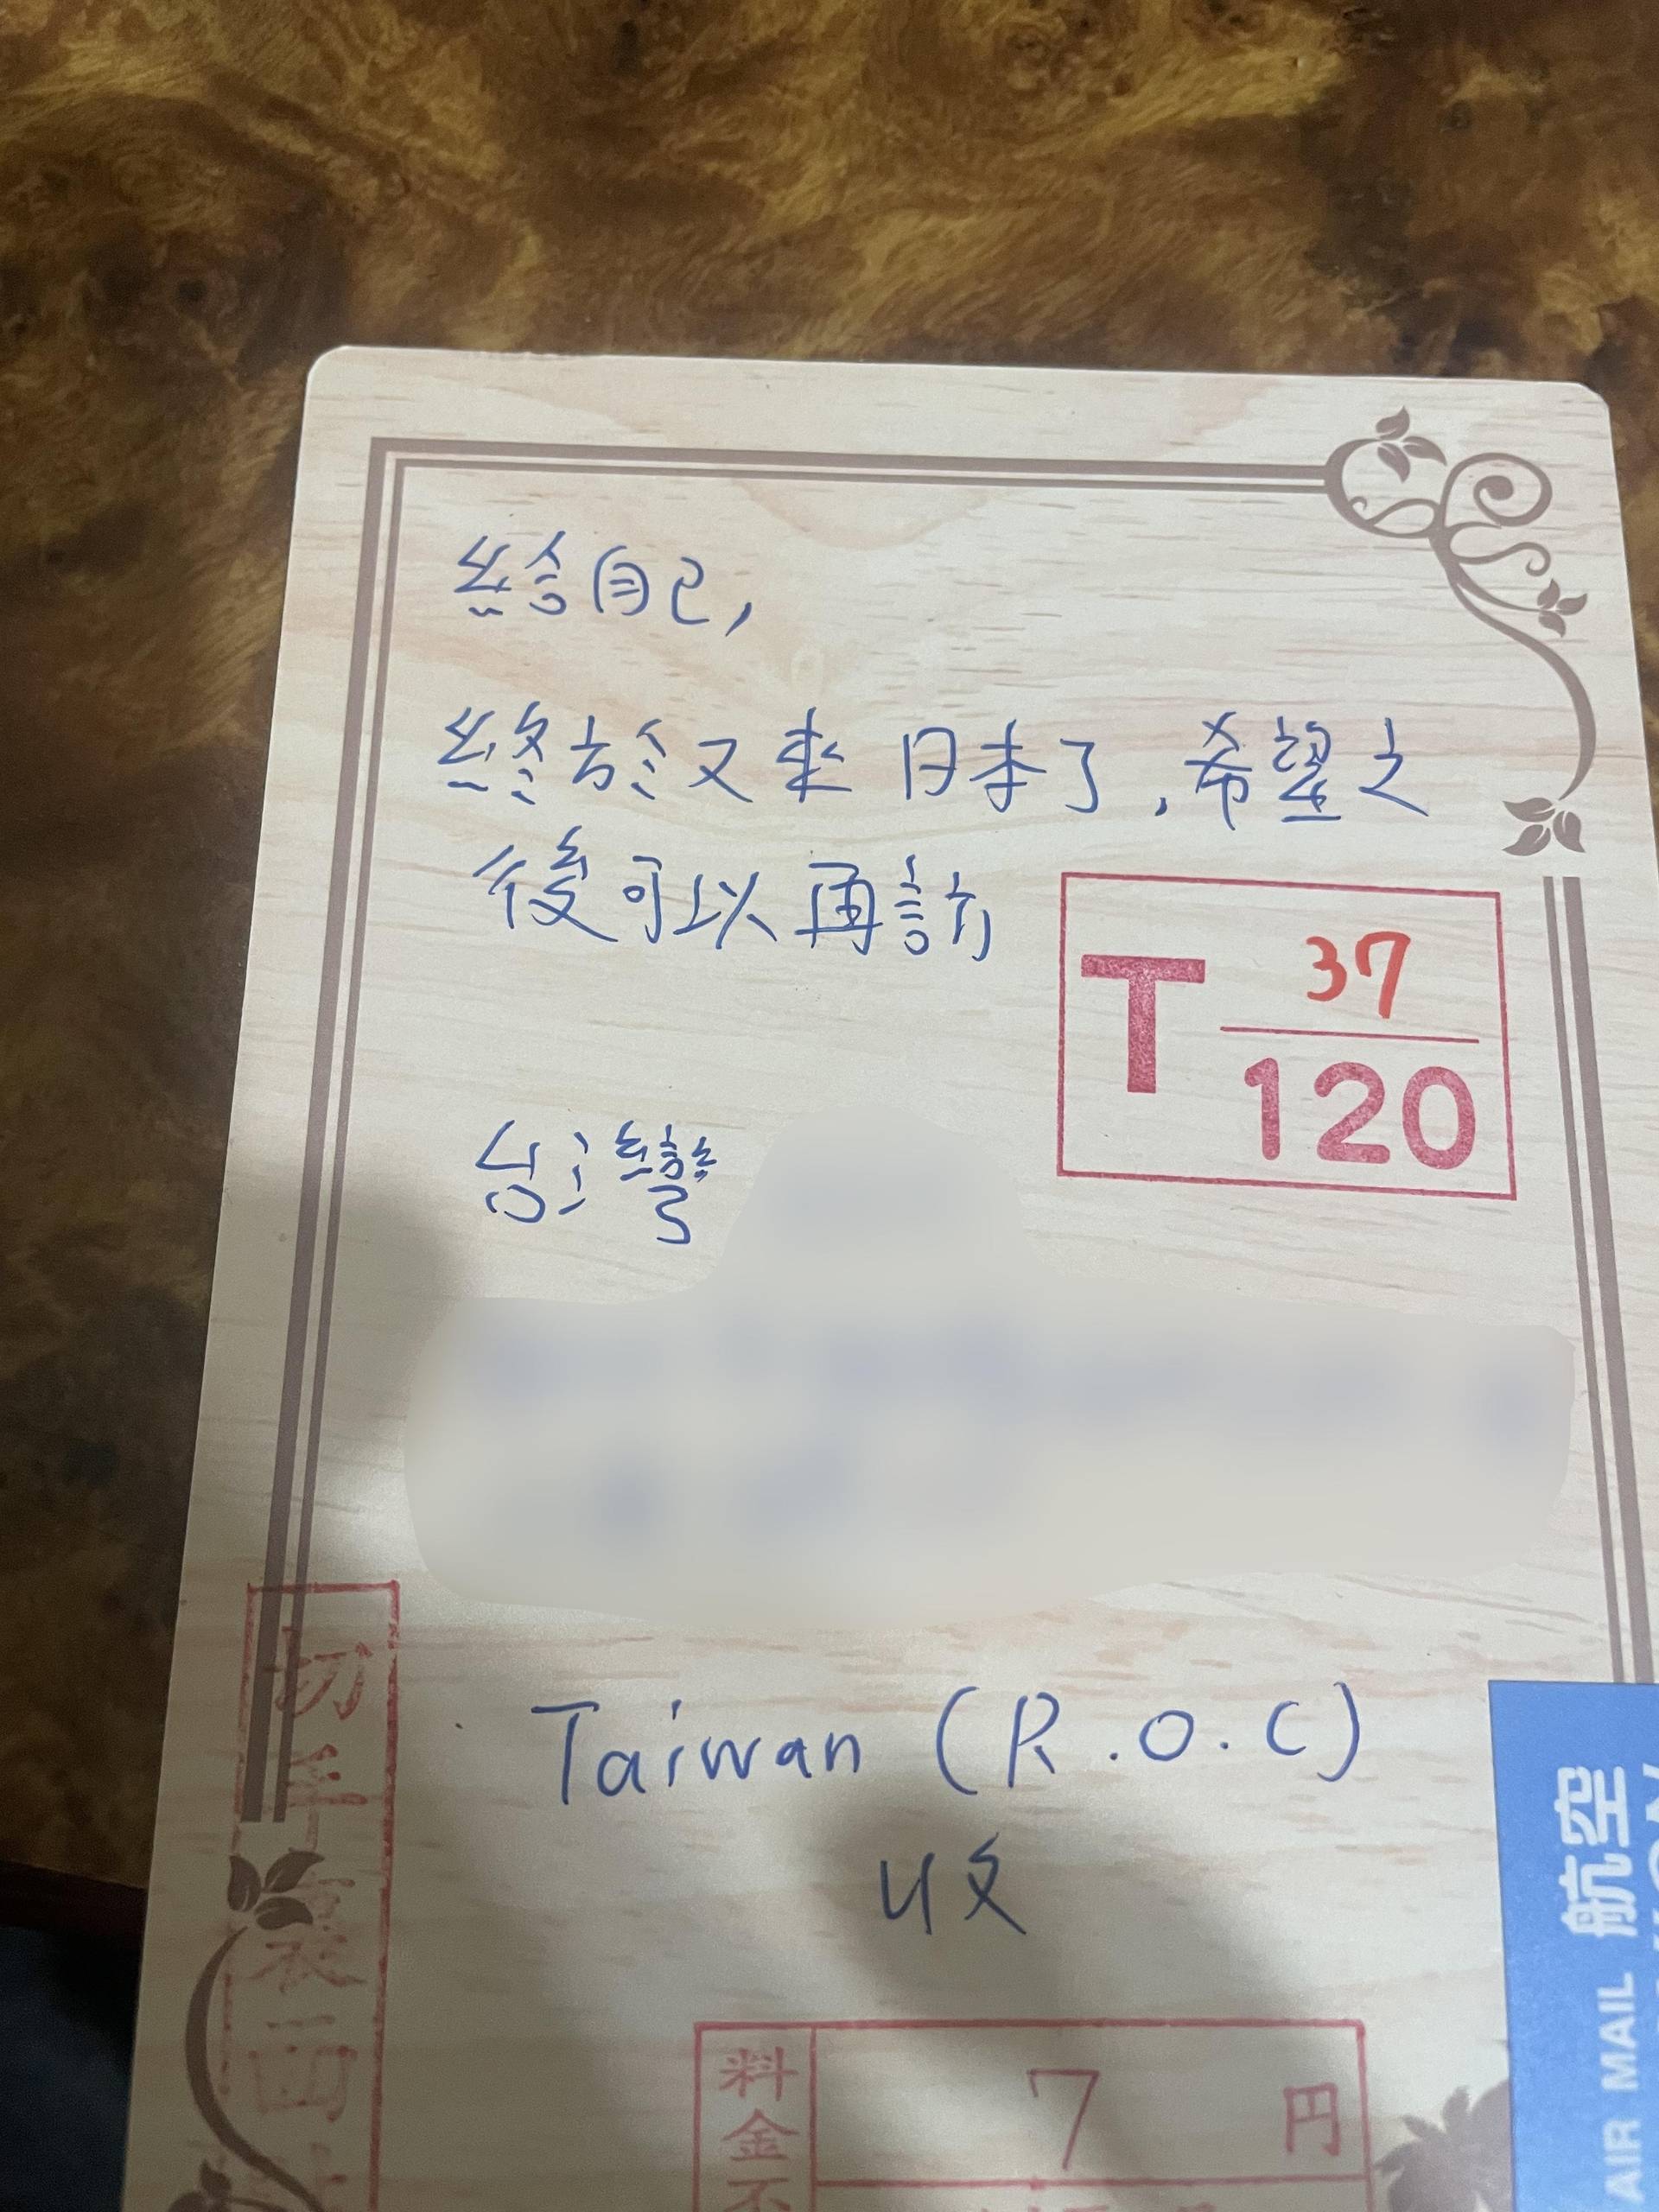 給自己,
終於又來日本了,希望之
後可以再訪
T 37
120
台灣
Taiwan (R.O.C)
收
切手表面
航空
AIR MAIL
料金不
7 円